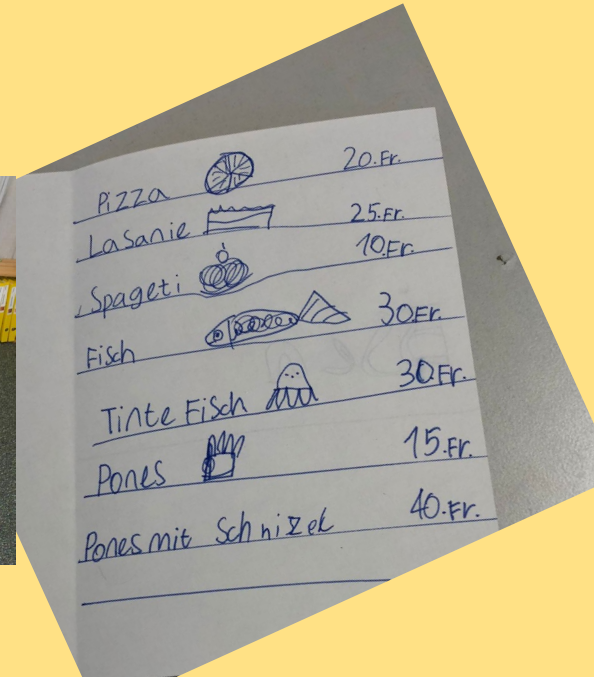 Pizza 20.Fr.
Lasanie 25.Fr.
Spageti 10.Fr.
Fisch 30.Fr.
Tinte Fisch 30.Fr.
Pones 15.Fr.
Pones mit Schnizel 40.Fr.